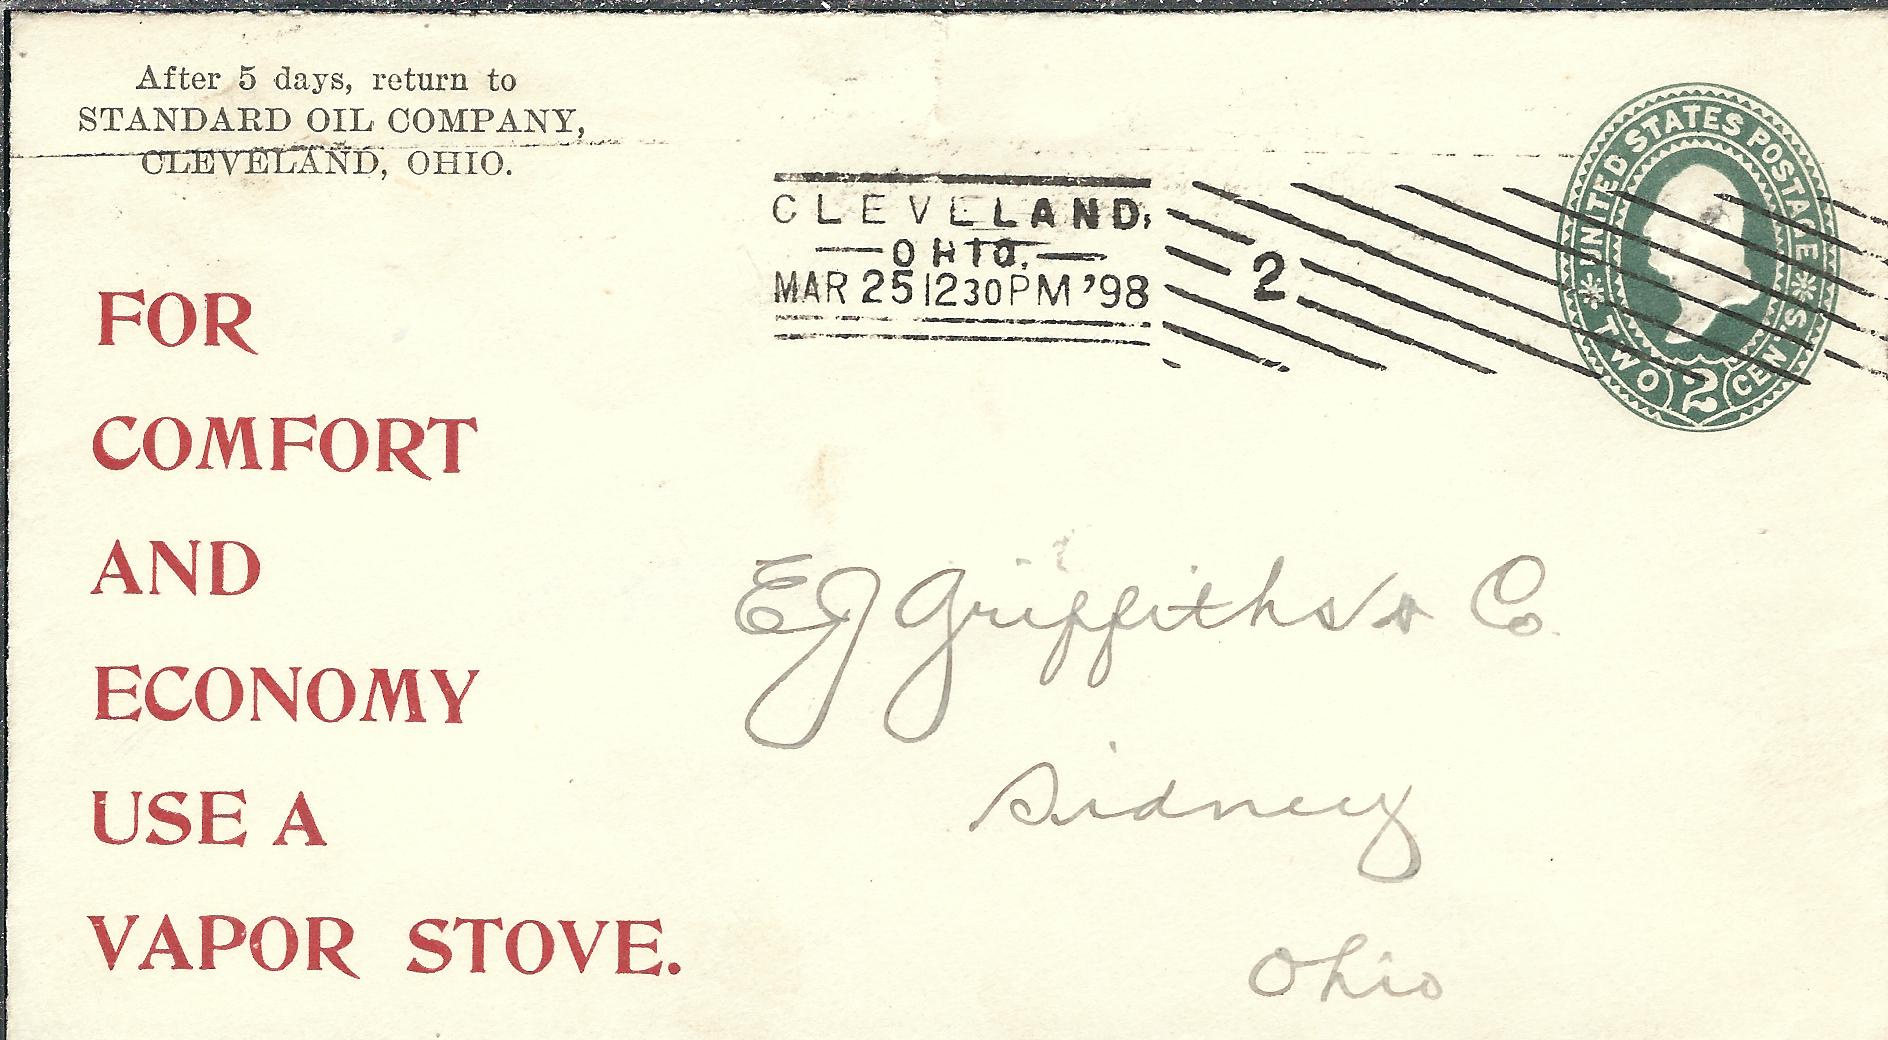 After 5 days, return to
STANDARD OIL COMPANY,
CLEVELAND, OHIO.
CLEVELAND,
OHIO.
MAR 25 1230PM '98
2
UNITED STATES POSTAGE
TWO 2 CENTS
FOR
COMFORT
AND
ECONOMY
USE A
VAPOR STOVE.
EJ Griffiths & Co
Sidney
Ohio